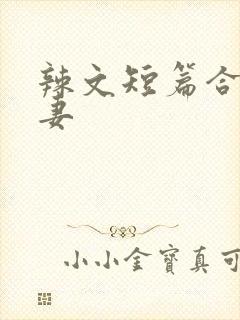 辣文短篇合
妻
小小金寶真可